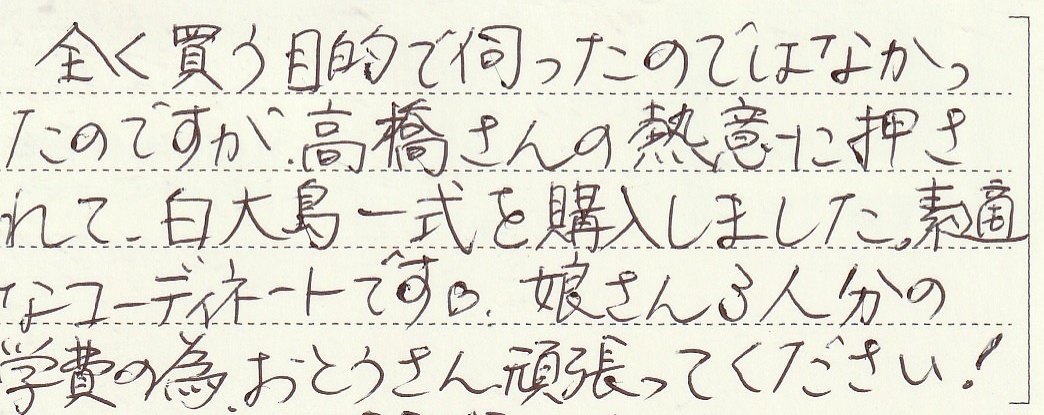 全く買う目的で伺ったのではなかっ
たのですが、高橋さんの熱意に押さ
れて、白大島一式を購入しました。素適
なコーディネートです。娘さん3人分の
学費の為、おとうさん頑張ってください!